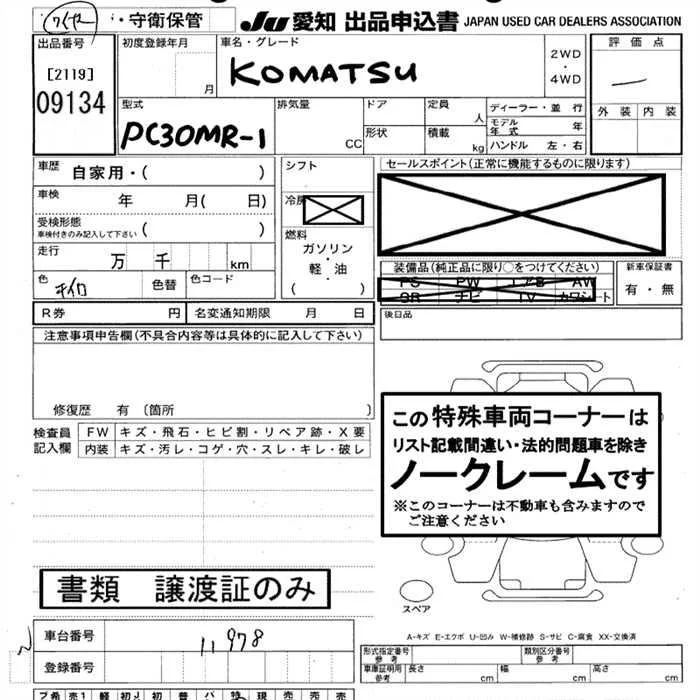 ・守衛保管
JU 愛知 出品申込書 JAPAN USED CAR DEALERS ASSOCIATION
出品番号
[2119]
09134
初度登録年月
月
車名・グレード
KOMATSU
2WD
・
4WD
評価点
—
外装 内装
型式
PC30MR-1
排気量
CC
ドア
形状
定員
人
積載
kg
ディーラー・並行
モデル年式 年
ハンドル 左・右
車歴 自家用・( )
車検 年 月( 日)
受検形態
車検付きのみ記入して下さい ( )
走行 万 千 km
色 キイロ 色替 色コード
シフト
冷房
燃料
ガソリン
・
軽・油
( )
セールスポイント(正常に機能するものに限ります)
装備品(純正品に限り○をつけてください)
PS PW エアB AW
SR ナビ TV カワシート
新車保証書
有・無
R券 円 名変通知期限 月 日
後日品
注意事項申告欄(不具合内容等は具体的に記入して下さい)
修復歴 有(箇所 )
検査員記入欄
FW キズ・飛石・ヒビ割・リペア跡・X要
内装 キズ・汚レ・コゲ・穴・スレ・キレ・破レ
この特殊車両コーナーは
リスト記載間違い・法的問題車を除き
ノークレームです
※このコーナーは不動車も含みますので
ご注意ください
書類 譲渡証のみ
スペア
A-キズ E-エクボ U-凹み W-補修跡 S-サビ C-腐食 XX-交換済
車台番号 11978
登録番号
形式指定番号 参考
類別区分番号 参考
車庫証明用 参考 長さ cm 幅 cm 高さ cm